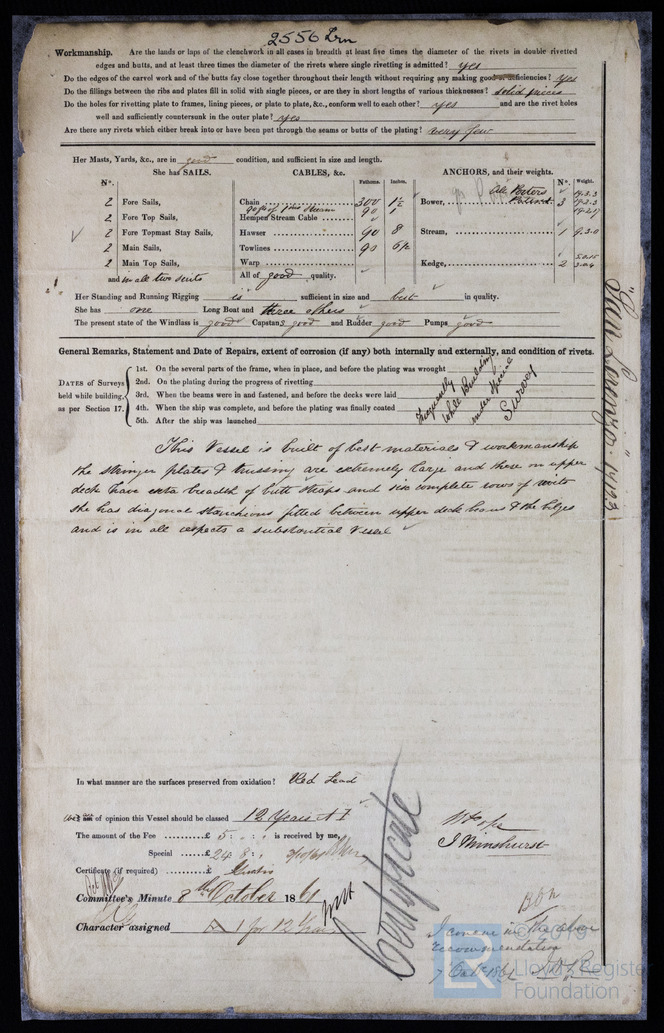 2556 Irn
Workmanship. Are the lands or laps of the clenchwork in all cases in breadth at least five times the diameter of the rivets in double rivetted
edges and butts, and at least three times the diameter of the rivets where single rivetting is admitted? yes
Do the edges of the carvel work and of the butts fay close together throughout their length without requiring any making good deficiencies? yes
Do the fillings between the ribs and plates fill in solid with single pieces, or are they in short lengths of various thicknesses? solid pieces
Do the holes for rivetting plate to frames, lining pieces, or plate to plate, &c., conform well to each other? yes and are the rivet holes
well and sufficiently countersunk in the outer plate? yes
Are there any rivets which either break into or have been put through the seams or butts of the plating? very few
Her Masts, Yards, &c., are in good condition, and sufficient in size and length.
She has SAILS. CABLES, &c. ANCHORS, and their weights.
No. Fathoms. Inches. No. Weight.
2 Fore Sails, Chain 300 1½ Bower, 3
2 Fore Top Sails, Hempen Stream Cable 90 1
2 Fore Topmast Stay Sails, Hawser 90 8 Stream, 1 9.3.0
2 Main Sails, Towlines 90 6½
2 Main Top Sails, Warp Kedge, 2
and in all two suits All of good quality.
Her Standing and Running Rigging is sufficient in size and best in quality.
She has one Long Boat and three others
The present state of the Windlass is good Capstans good and Rudder good Pumps good
General Remarks, Statement and Date of Repairs, extent of corrosion (if any) both internally and externally, and condition of rivets.
DATES of Surveys held while building, as per Section 17.
1st. On the several parts of the frame, when in place, and before the plating was wrought
2nd. On the plating during the progress of rivetting
3rd. When the beams were in and fastened, and before the decks were laid
4th. When the ship was complete, and before the plating was finally coated
5th. After the ship was launched
Frequently
while Building
under Special
Survey
This Vessel is built of best materials & workmanship
the stringer plates & trussing are extremely large and these on upper
deck have extra breadth of butt straps and six complete rows of rivets
she has diagonal stanchions fitted between upper deck beams & the bilges
and is in all respects a substantial Vessel
"San Lorenzo" 1423
In what manner are the surfaces preserved from oxidation? Red Lead
we are of opinion this Vessel should be classed 12 Years A I
The amount of the Fee £ 5 : : is received by me,
Special £ 24 : 8 :
Certificate (if required) £ Gratis
Committee's Minute 8th October 1861
Character assigned A 1 for 12 Years
Certificate
I concur in the above
recommendation
Lloyd's Register
Foundation
LR